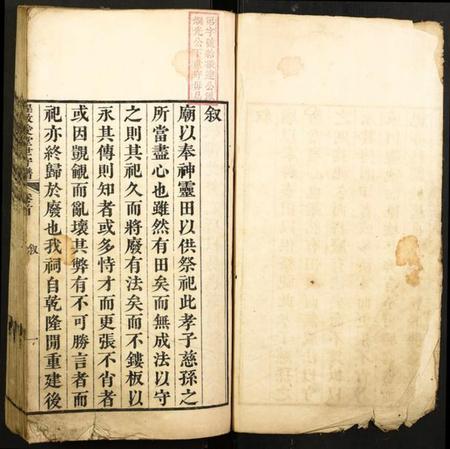 叙
廟以奉神靈田以供祭祀此孝子慈孫之
所當盡心也雖然有田矣而無成法以守
之則其祀久而將廢有法矣而不鏤板以
永其傳則知者或多恃才而更張不肖者
或因覬覦而亂壞其弊有不可勝言者而
祀亦終歸於廢也我祠自乾隆開重建後
卷首
叙
一